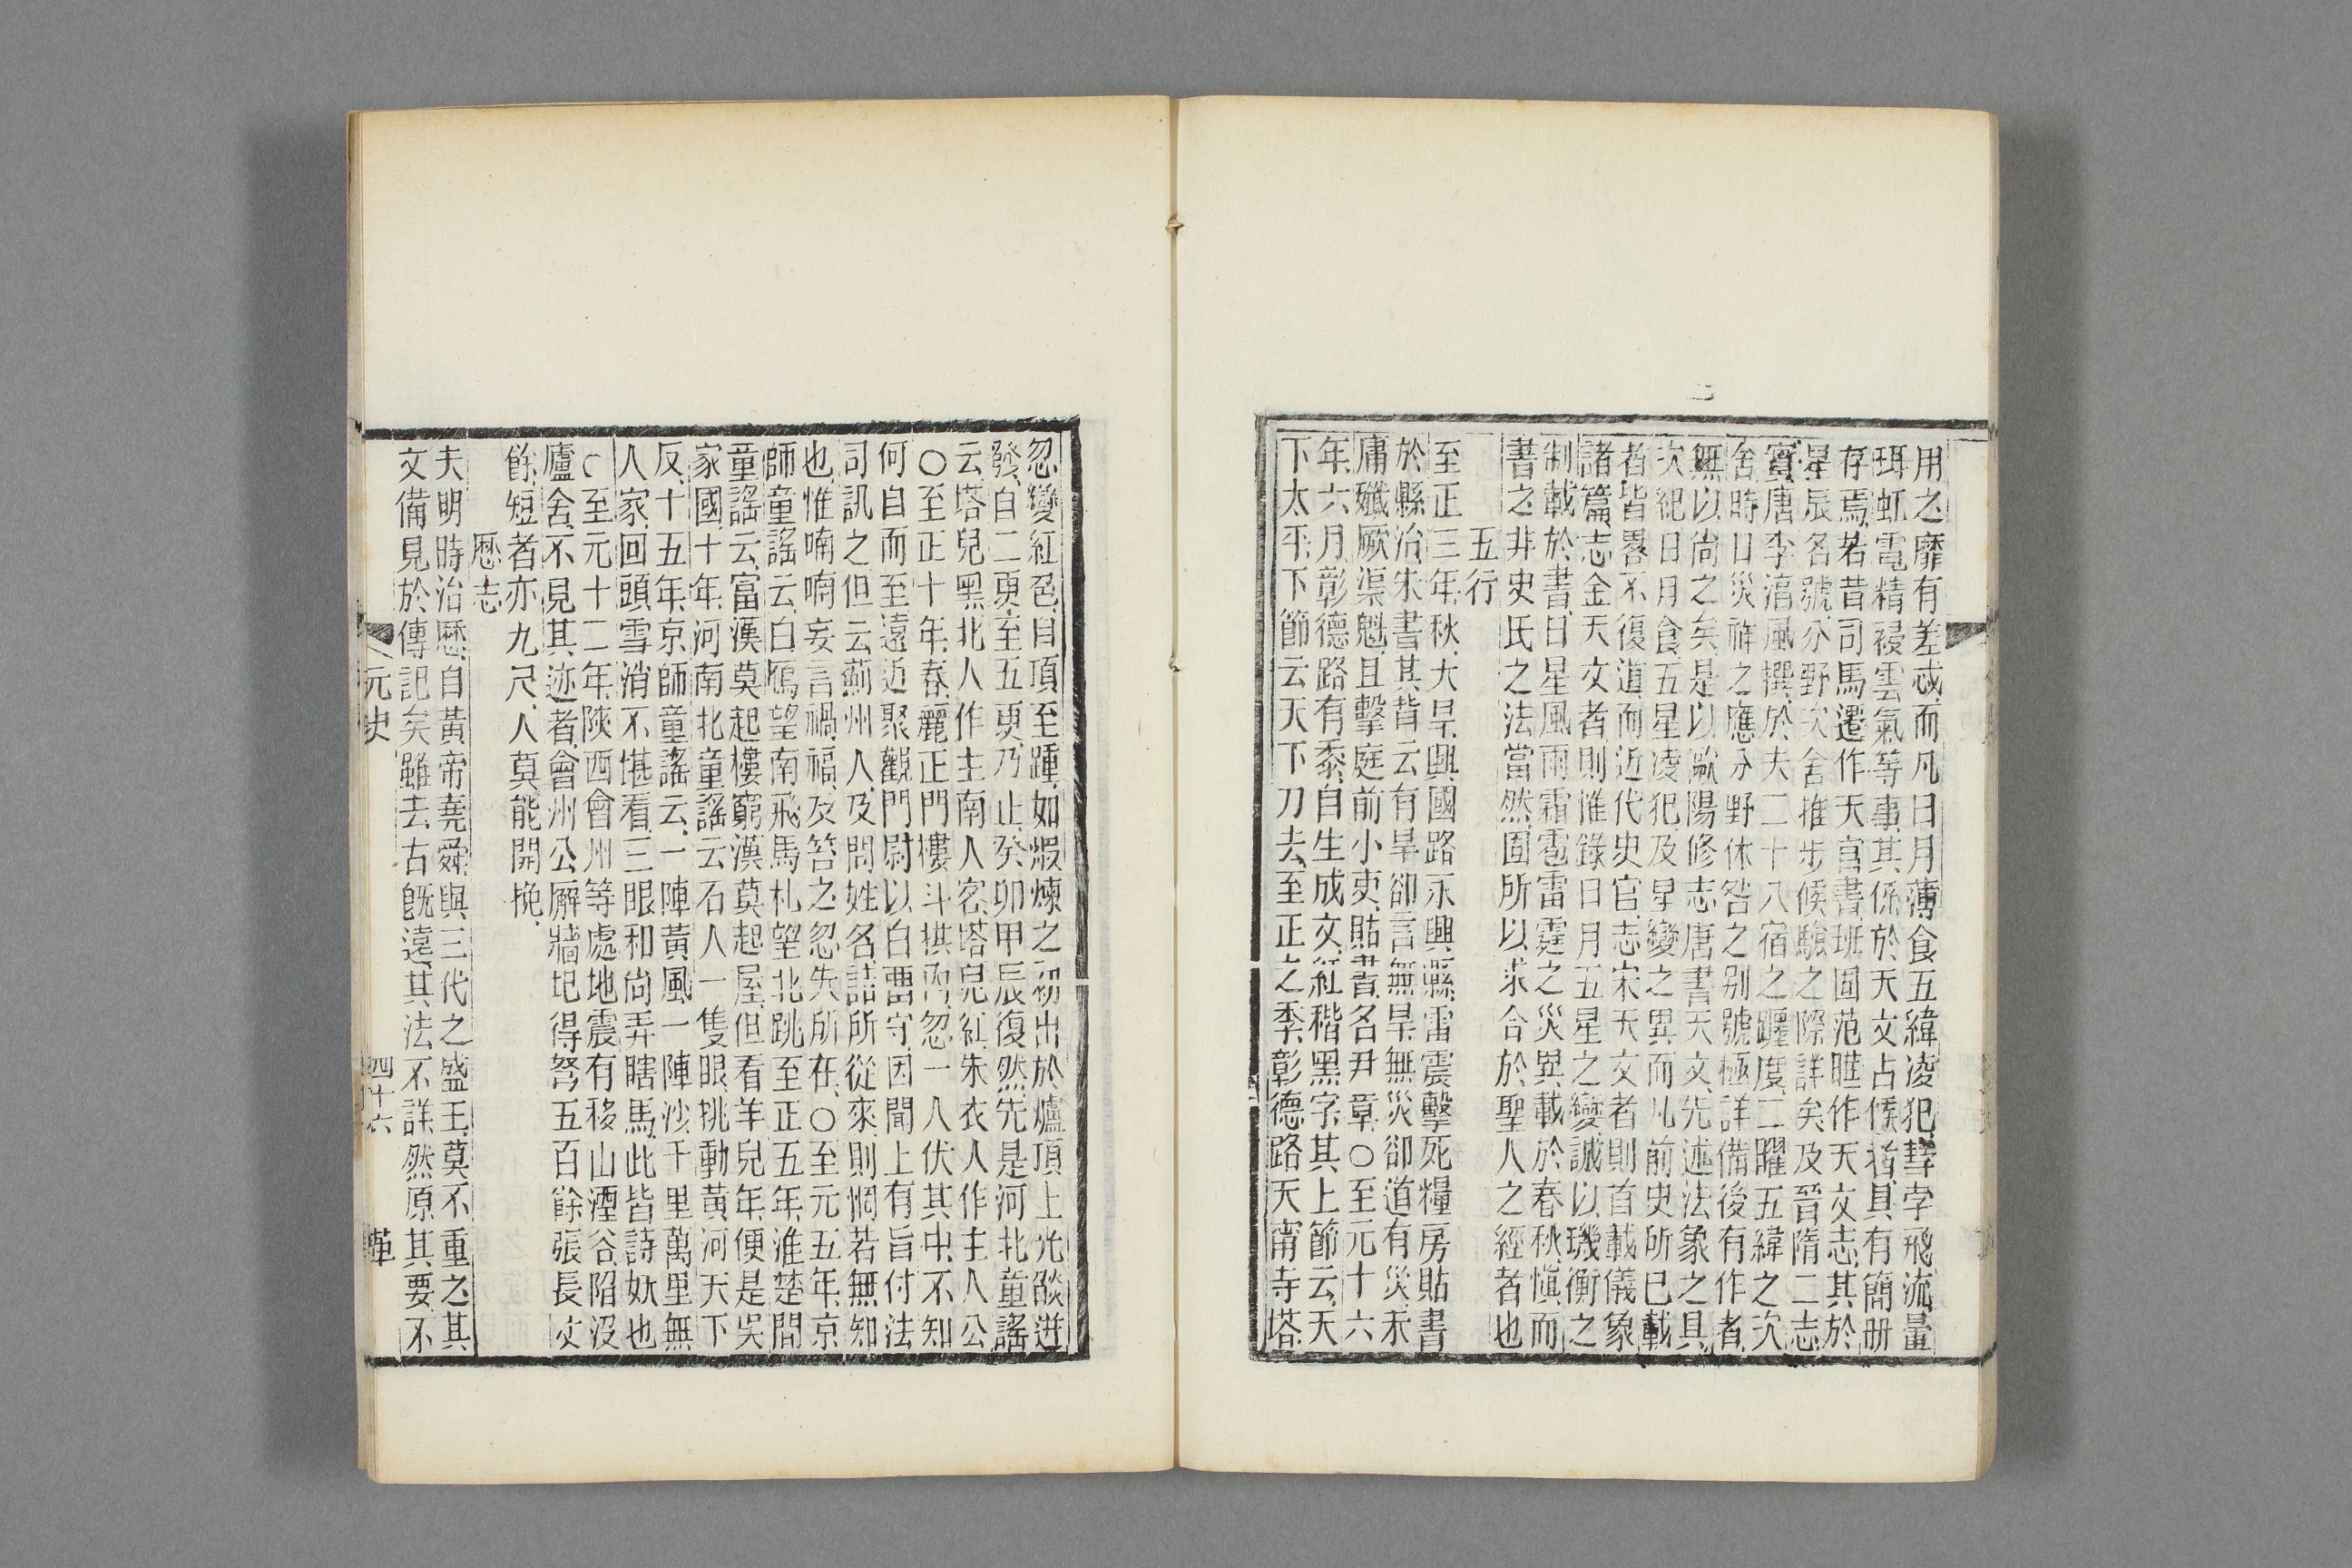 用之靡有差忒而凡日月薄食五緯凌犯彗孛飛流暈
珥虹霓精祲雲氣等事其係於天文占候者具有簡册
存焉若昔司馬遷作天官書班固范曄作天文志其於
星辰名號分野次舍推步候驗之際詳矣及晉隋二志
實唐李淳風撰於夫二十八宿之躔度二曜五緯之次
舍時日災祥之應分野休咎之别號極詳備後有作者
無以尚之矣是以歐陽修志唐書天文先述法象之具
次紀日月食五星凌犯及星變之異而凡前史所已載
者皆畧不復道而近代史官志宋天文者則首載儀象
諸篇志金天文者則惟錄日月五星之變誠以璣衡之
制載於書日星風雨霜雹雷霆之災異載於春秋慎而
書之非史氏之法當然固所以求合於聖人之經者也
五行
至正三年秋大旱興國路永興縣雷震擊死糧房貼書
於縣治朱書其背云有旱卻言無旱無災卻道有災未
庸殲厥渠魁且擊庭前小吏貼書名尹章○至元十六
年六月彰德路有黍自生成文紅稭黑字其上節云天
下太平下節云天下刀去至正之季彰德路天甯寺塔
忽變紅色自頂至踵如煅煉之初出於爐頂上光燄迸
發自二更至五更乃止癸卯甲辰復然先是河北童謠
云塔兒黑北人作主南人客塔兒紅朱衣人作主人公
○至正十年春麗正門樓斗拱內忽一人伏其中不知
何自而至遠近聚觀門尉以白畱守因聞上有旨付法
司訊之但云薊州人及問姓名詰所從來則惘若無知
也惟喃喃妄言禍福及笞之忽失所在○至元五年京
師童謠云白鴈望南飛馬札望北跳至正五年淮楚間
童謠云富漢莫起樓窮漢莫起屋但看羊兒年便是吳
家國十年河南北童謠云石人一隻眼挑動黃河天下
反十五年京師童謠云一陣黃風一陣沙千里萬里無
人家回頭雪消不堪看三眼和尚弄瞎馬此皆詩妖也
○至元十二年陝西會州等處地震有移山湮谷陷没
廬舍不見其迹者會州公廨牆圮得弩五百餘張長丈
餘短者亦九尺人莫能開挽
厯志
夫明時治厯自黃帝堯舜與三代之盛王莫不重之其
文備見於傳記矣雖去古旣遠其法不詳然原其要不
元史
四十六